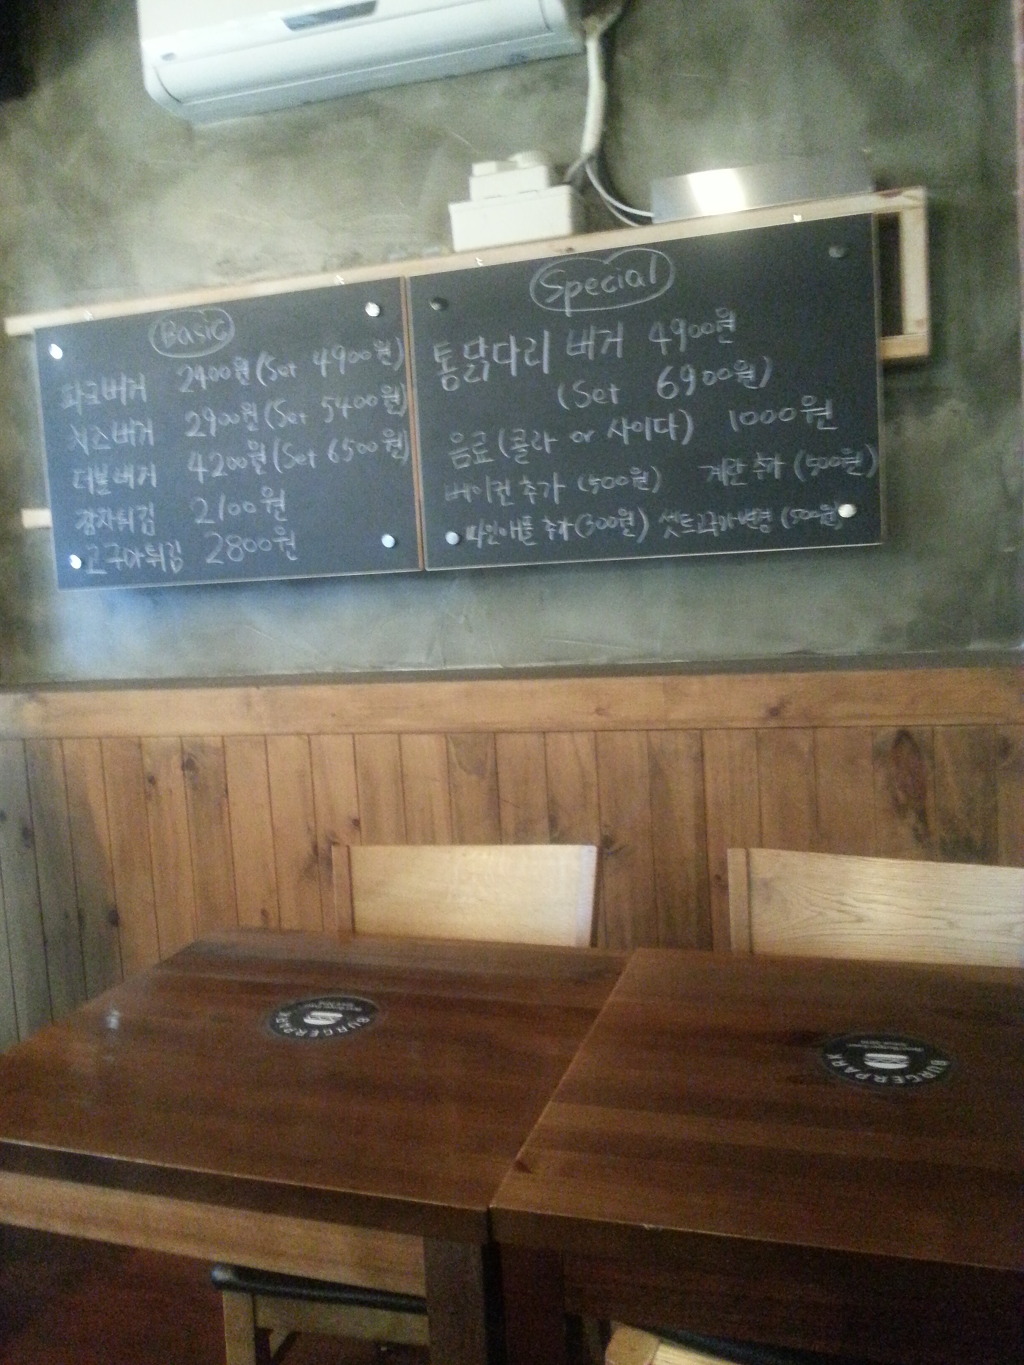 Basic
파크버거 2400원 (Set 4900원)
치즈버거 2900원 (Set 5400원)
더블버거 4200원 (Set 6500원)
감자튀김 2100원
고구마튀김 2800원
Special
통닭다리 버거 4900원
(Set 6900원)
음료 (콜라 or 사이다) 1000원
베이컨 추가 (500원) 계란 추가 (500원)
파인애플 추가 (300원) 셋트고구마변경 (500원)
BURGERPARK
BURGERPARK